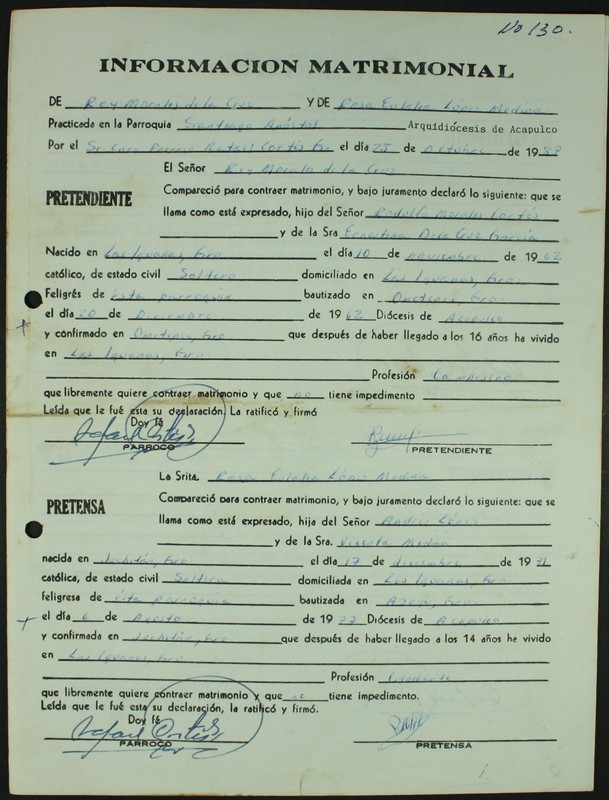 No 130.
INFORMACION MATRIMONIAL
DE Rey Morales de la Cruz Y DE Rosa Eulalia López Medina
Practicada en la Parroquia Santiago Apóstol Arquidiócesis de Acapulco
Por el Sr. Cura Rafael Cortés G. el día 25 de Octubre de 19
El Señor Rey Morales de la Cruz
PRETENDIENTE
Compareció para contraer matrimonio, y bajo juramento declaró lo siguiente: que se
llama como está expresado, hijo del Señor Rodolfo Morales Cortés
y de la Sra Ernestina Dela Cruz García
Nacido en Las Iguanas, Gro. el día 10 de noviembre de 1962
católico, de estado civil Soltero domiciliado en Las Iguanas, Gro.
Feligrés de esta parroquia bautizado en Ometepec, Gro.
el día 20 de Diciembre de 1962 Diócesis de Acapulco
y confirmado en Ometepec, Gro que después de haber llegado a los 16 años ha vivido
en Las Iguanas, Gro.
Profesión Campesino
que libremente quiere contraer matrimonio y que no tiene impedimento
Leída que le fué esta su declaración, La ratificó y firmó
Doy fé
Rafael Cortés
PARROCO PRETENDIENTE
La Srita. Rosa Eulalia López Medina
Compareció para contraer matrimonio, y bajo juramento declaró lo siguiente: que se
PRETENSA
llama como está expresado, hija del Señor Andrés López
y de la Sra. Vicenta Medina
nacida en Juchitán, Gro. el día 17 de diciembre de 1971
católica, de estado civil Soltera domiciliada en Las Iguanas, Gro.
feligresa de esta parroquia bautizada en Azoyú, Gro.
el día 6 de Agosto de 19 Diócesis de Acapulco
y confirmada en Juchitán, Gro que después de haber llegado a los 14 años ha vivido
en Las Iguanas, Gro.
Profesión Estudiante
que libremente quiere contraer matrimonio y que no tiene impedimento.
Leída que le fué esta su declaración, la ratificó y firmó.
Doy fé
Rafael Cortés
PARROCO PRETENSA